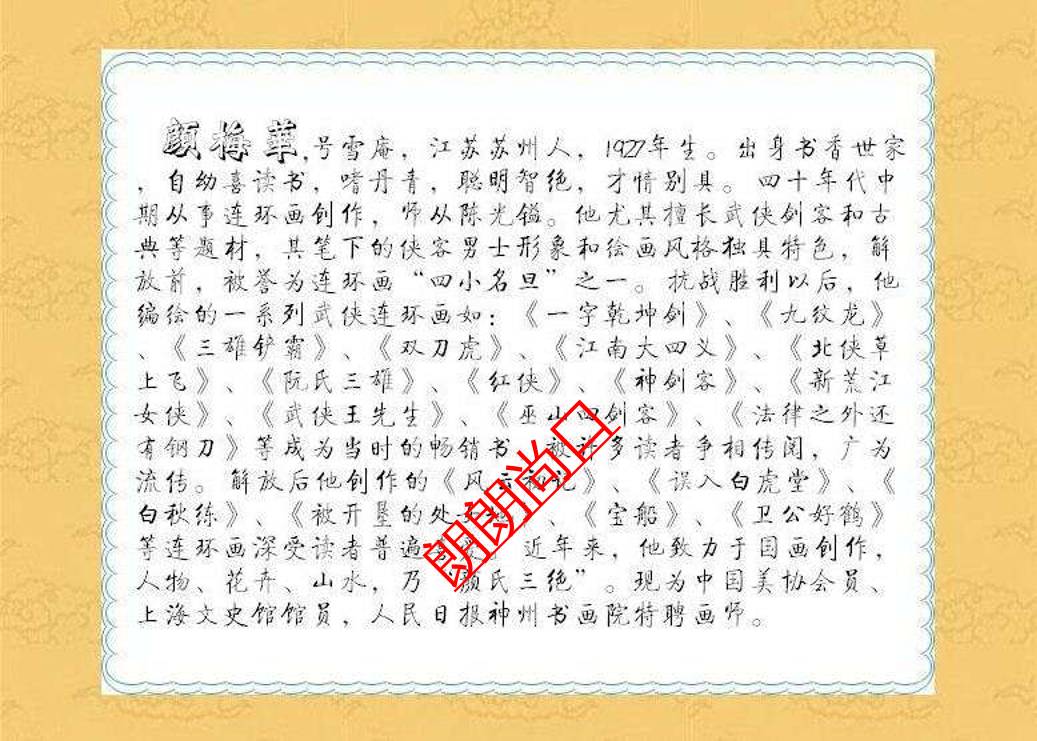 颜梅華,号雪庵，江苏苏州人，1927年生。出身书香世家
，自幼喜读书，嗜丹青，聪明智绝，才情别具。四十年代中
期从事连环画创作，师从陈光镒。他尤其擅长武侠剑客和古
典等题材，其笔下的侠客男士形象和绘画风格独具特色，解
放前，被誉为连环画“四小名旦”之一。抗战胜利以后，他
编绘的一系列武侠连环画如：《一字乾坤剑》、《九纹龙》
、《三雄铲霸》、《双刀虎》、《江南大四义》、《北侠草
上飞》、《阮氏三雄》、《红侠》、《神剑客》、《新荒江
女侠》、《武侠王先生》、《巫山四剑客》、《法律之外还
有钢刀》等成为当时的畅销书，被许多读者争相传阅，广为
流传。解放后他创作的《风云初记》、《误入白虎堂》、《
白秋练》、《被开垦的处女地》、《宝船》、《卫公好鹤》
等连环画深受读者普遍喜爱。近年来，他致力于国画创作，
人物、花卉、山水，乃“颜氏三绝”。现为中国美协会员、
上海文史馆馆员，人民日报神州书画院特聘画师。
朗朗尚口